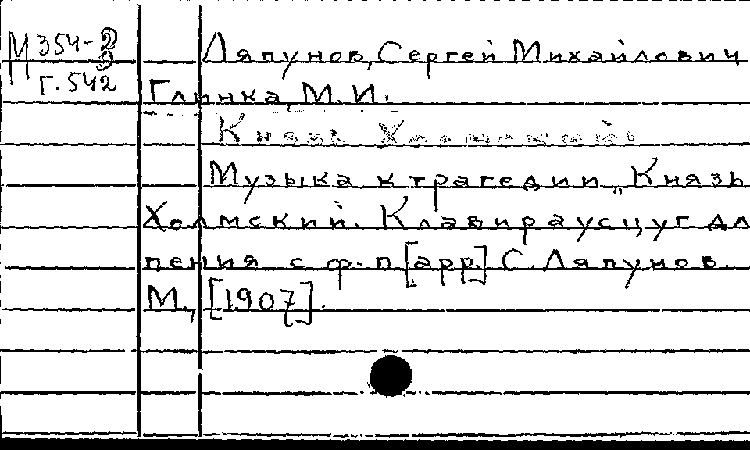 М 354-2
Г. 542
Ляпунов, Сергей Михайлович
Глинка, М. И.
Князь Холмский
Музыка к трагедии „Князь
Холмский. Клавираусцуг дл
пения с ф-п [арр.] С. Ляпунов.
М., [1907].